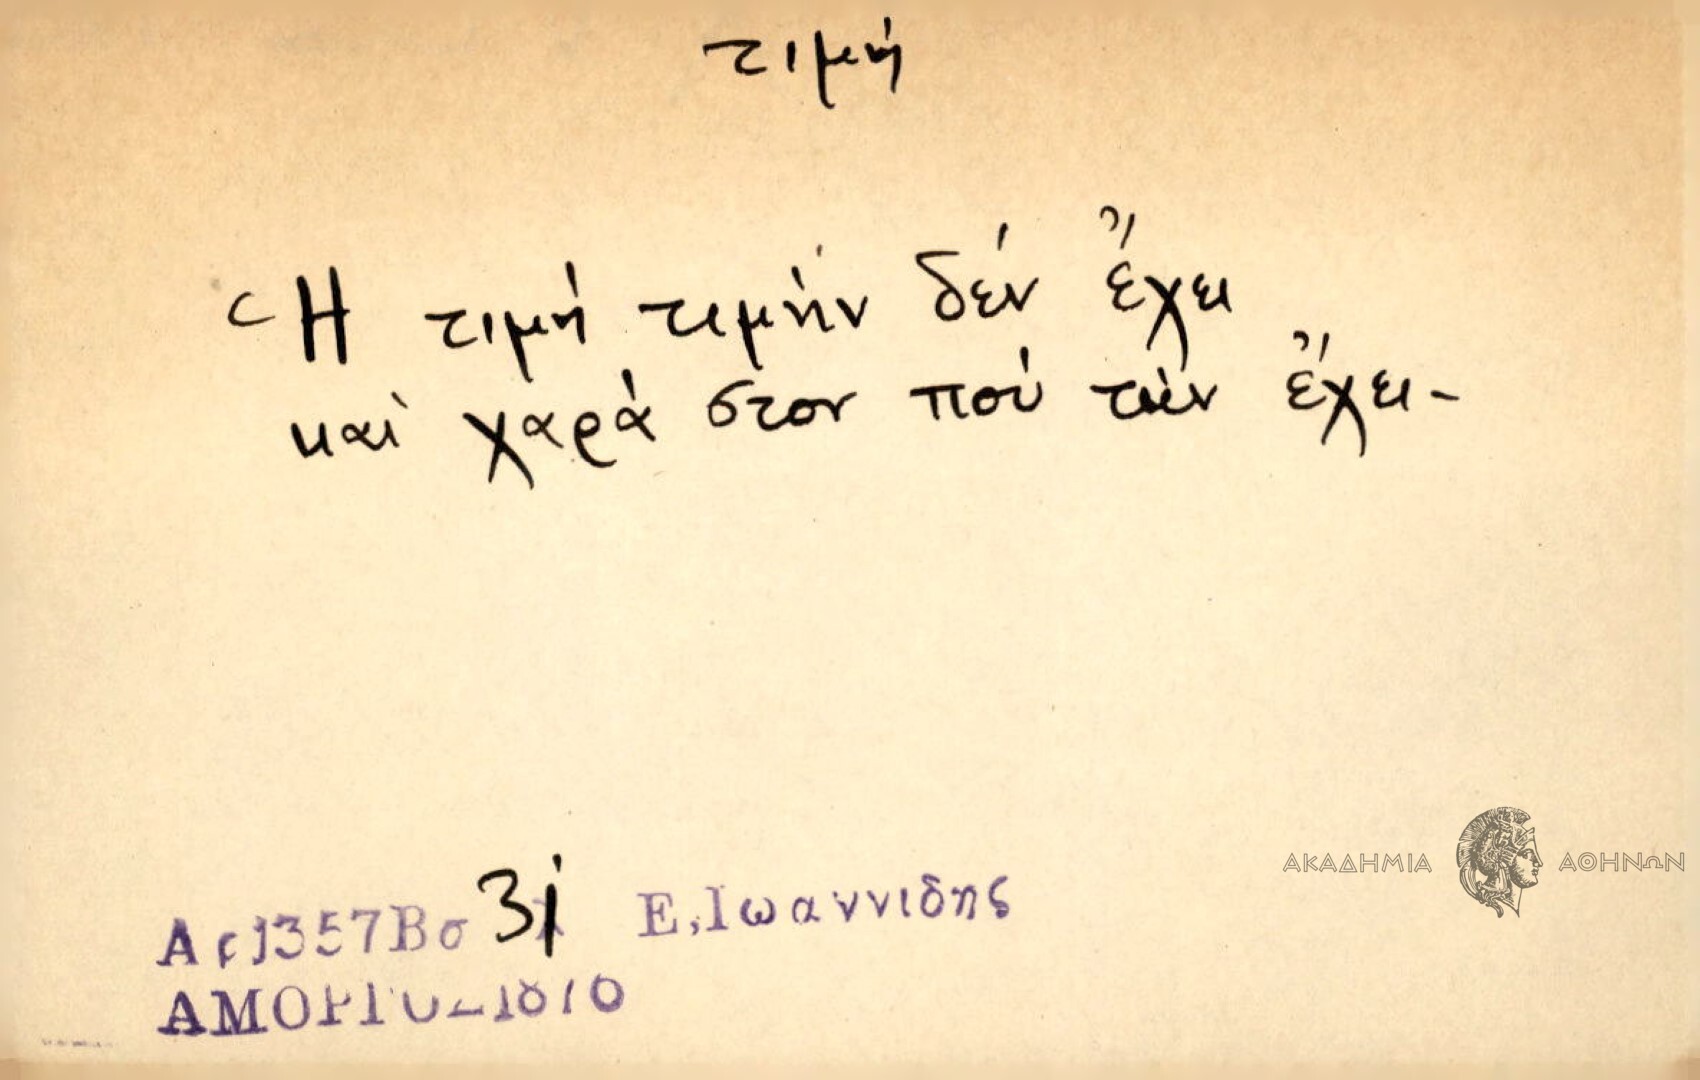 τιμή
Ἡ τιμή τιμήν δέν ἔχει
καὶ χαρά στον πού τήν ἔχει-
Αρ1357Βσ 31 Ε.Ιωαννιδης
ΑΜΟΡΓΟΣ1876
ΑΚΑΔΗΜΙΑ ΑΘΗΝΩΝ